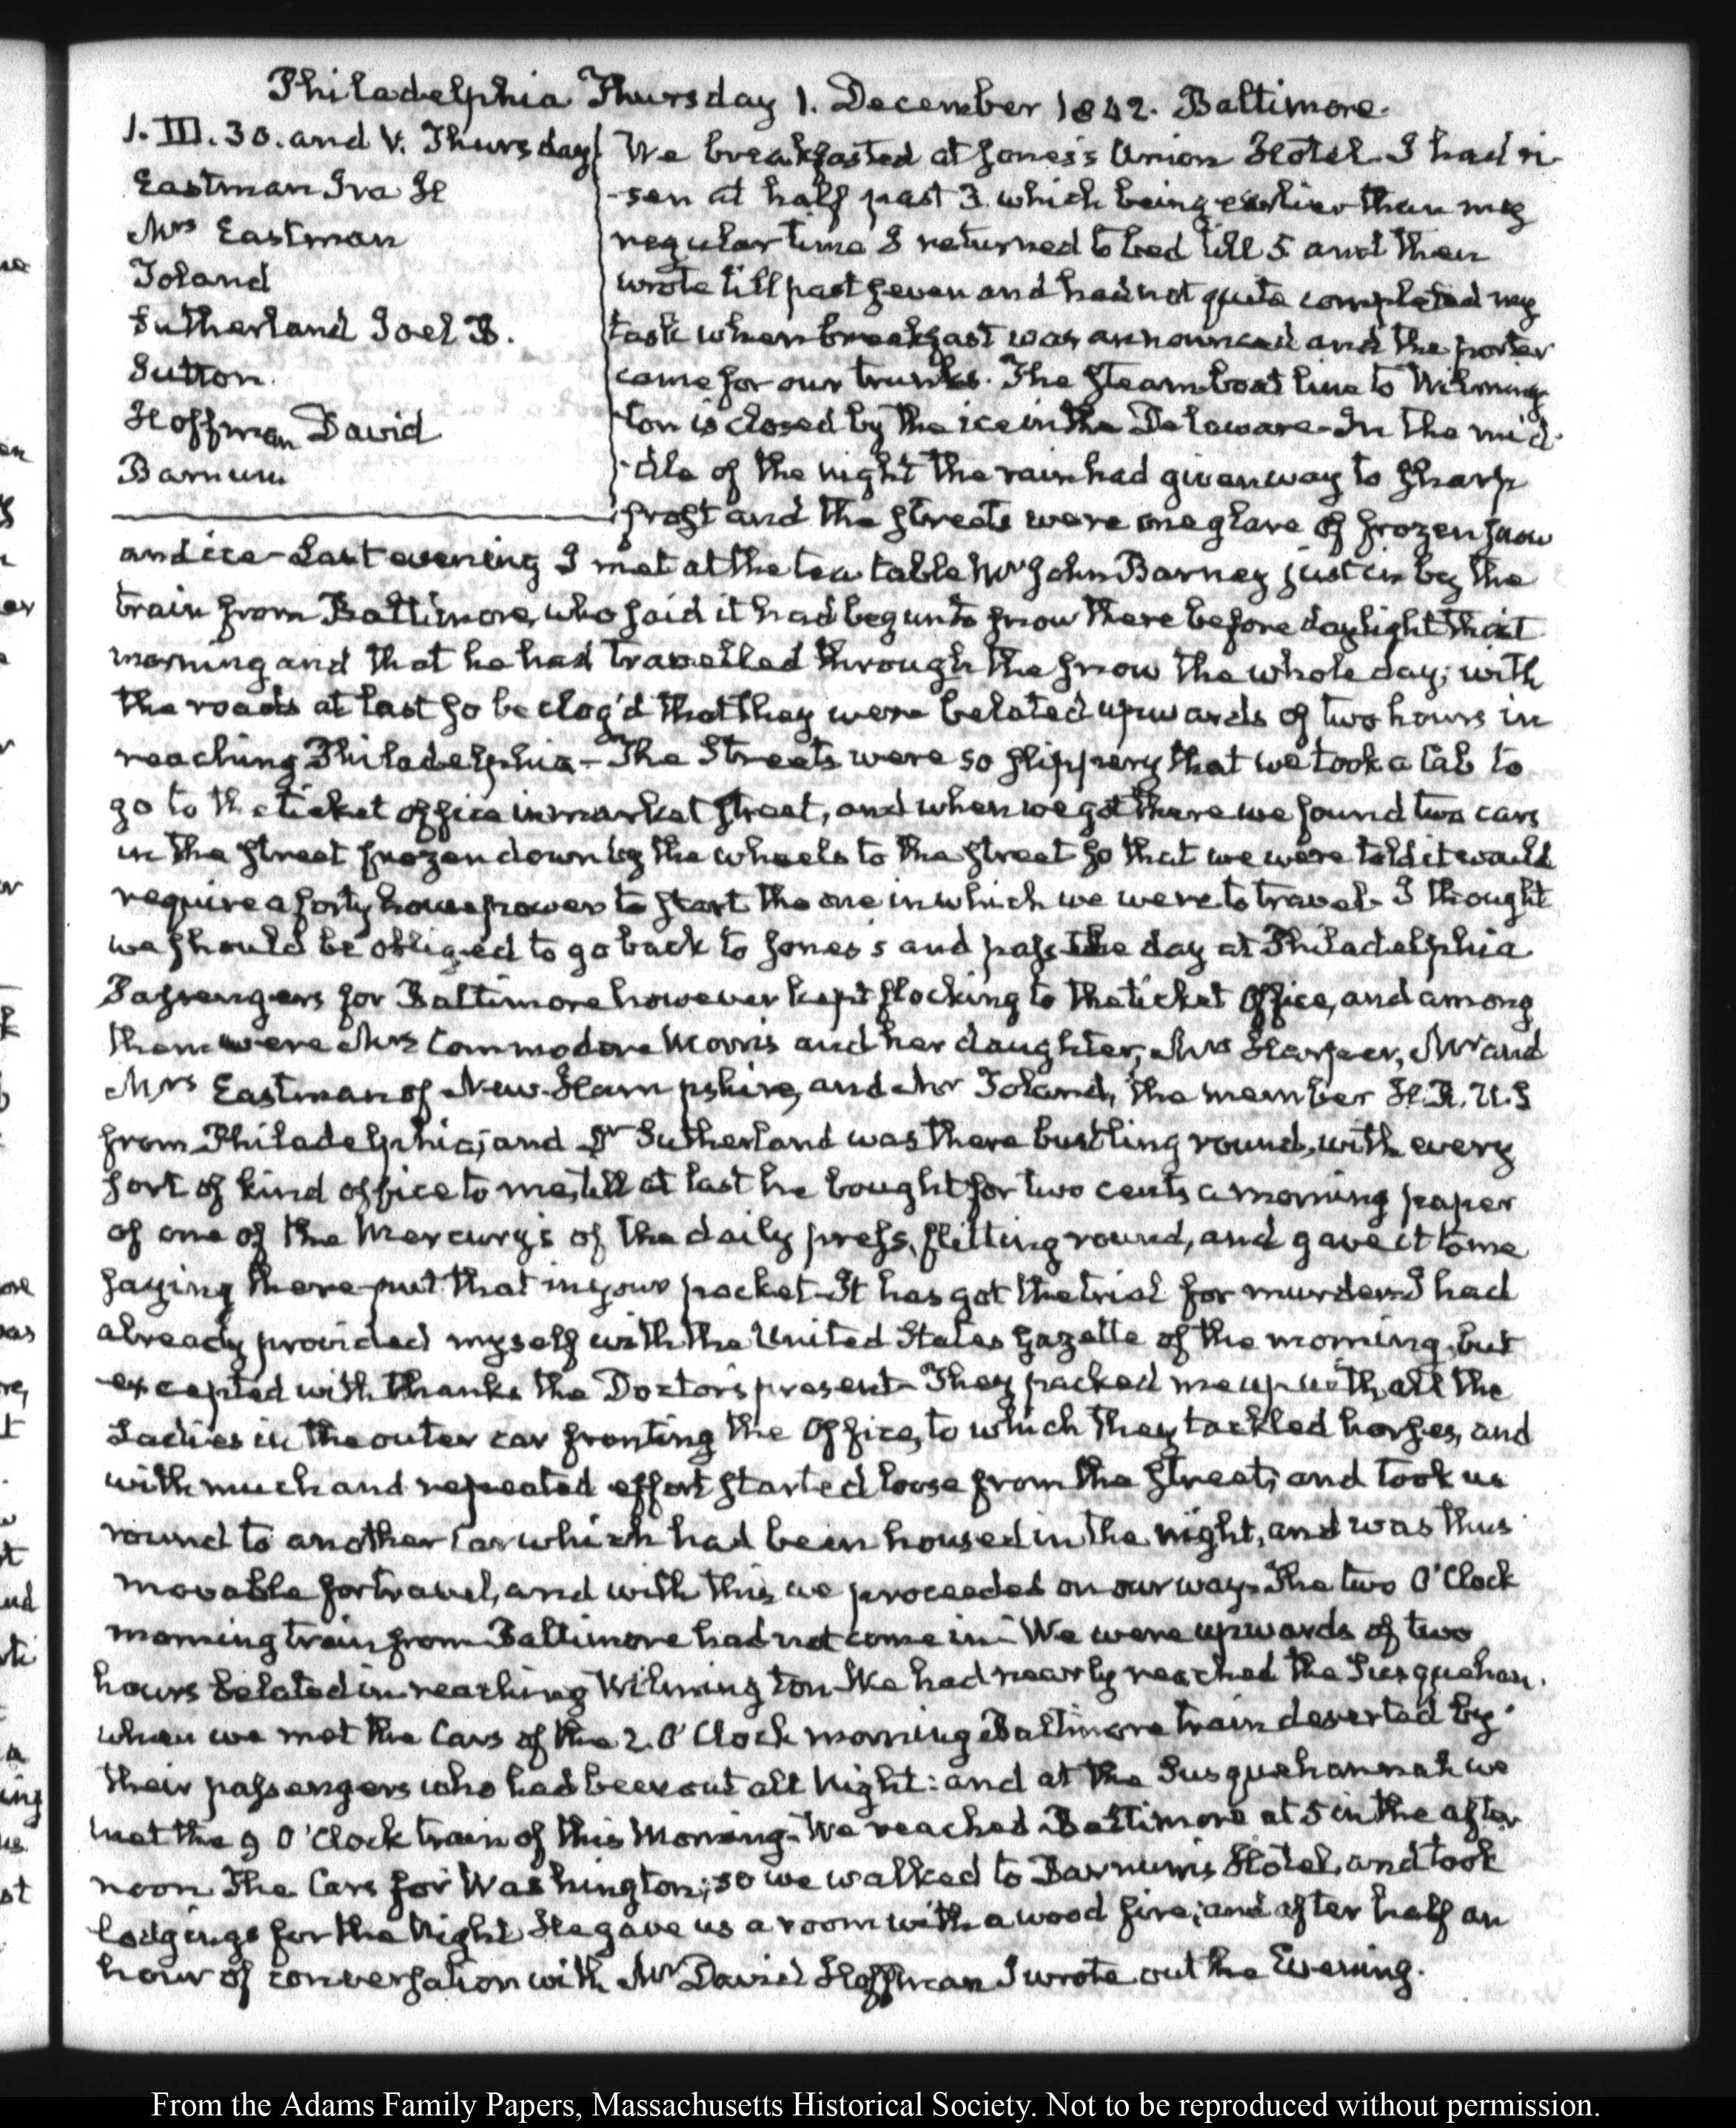 Philadelphia Thursday 1. December 1842. Baltimore.
1. III. 30. and V. Thursday
Eastman Ira H
Mrs Eastman
Toland
Sutherland Joel B.
Sutton.
Hoffman David
Barnum
We breakfasted at Jones's Union Hotel. I had ri-
-sen at half past 3. which being earlier than my
regular time I returned to bed till 5 and then
wrote till past seven and had not quite completed my
task when breakfast was announced and the porter
came for our trunks. The steam boat line to Wilming-
ton is closed by the ice in the Delaware - In the mid-
-dle of the night the rain had given way to sharp
frost and the streets were one glare of frozen snow
and ice - Last evening I met at the tea table Mr John Barney just in by the
train from Baltimore, who said it had begun to snow there before daylight that
morning and that he had travelled through the snow the whole day; with
the roads at last so beclog'd that they were belated upwards of two hours in
reaching Philadelphia - The Streets were so slippery that we took a cab to
go to the ticket office in market street, and when we got there we found two cars
in the street frozen down by the wheels to the street so that we were told it would
require a forty horse power to start the one in which we were to travel - I thought
we should be obliged to go back to Jones's and pass the day at Philadelphia
Passengers for Baltimore however kept flocking to the ticket Office, and among
them were Mrs Commodore Morris and her daughter, Mrs Harper, Mr and
Mrs Eastman of New-Hampshire, and Mr Toland, the member H.R. U.S
from Philadelphia; and Dr Sutherland was there bustling round, with every
sort of kind office to me, till at last he bought for two cents a morning paper
of one of the Mercury's of the daily press, flitting round, and gave it to me
saying there put that in your pocket - It has got the trial for murder - I had
already provided myself with the United States Gazette of the morning, but
excepted with thanks the Doctor's present - They packed me up with all the
Ladies in the outer car fronting the Office, to which they tackled horses, and
with much and repeated effort started loose from the street; and took us
round to another Car which had been housed in the night, and was thus
movable for travel, and with this we proceeded on our way - The two O'Clock
morning train from Baltimore had not come in - We were upwards of two
hours belated in reaching Wilmington - We had nearly reached the Susquehan.
when we met the Cars of the 2. O'Clock morning Baltimore train deserted by
their passengers who had been out all Night: and at the Susquehannah we
met the 9 O'Clock train of this Morning - We reached Baltimore at 5 in the after
noon The Cars for Washington; so we walked to Barnum's Hotel, and took
lodgings for the Night He gave us a room with a wood fire; and after half an
hour of conversation with Mr David Hoffman I wrote out the Evening.
From the Adams Family Papers, Massachusetts Historical Society. Not to be reproduced without permission.